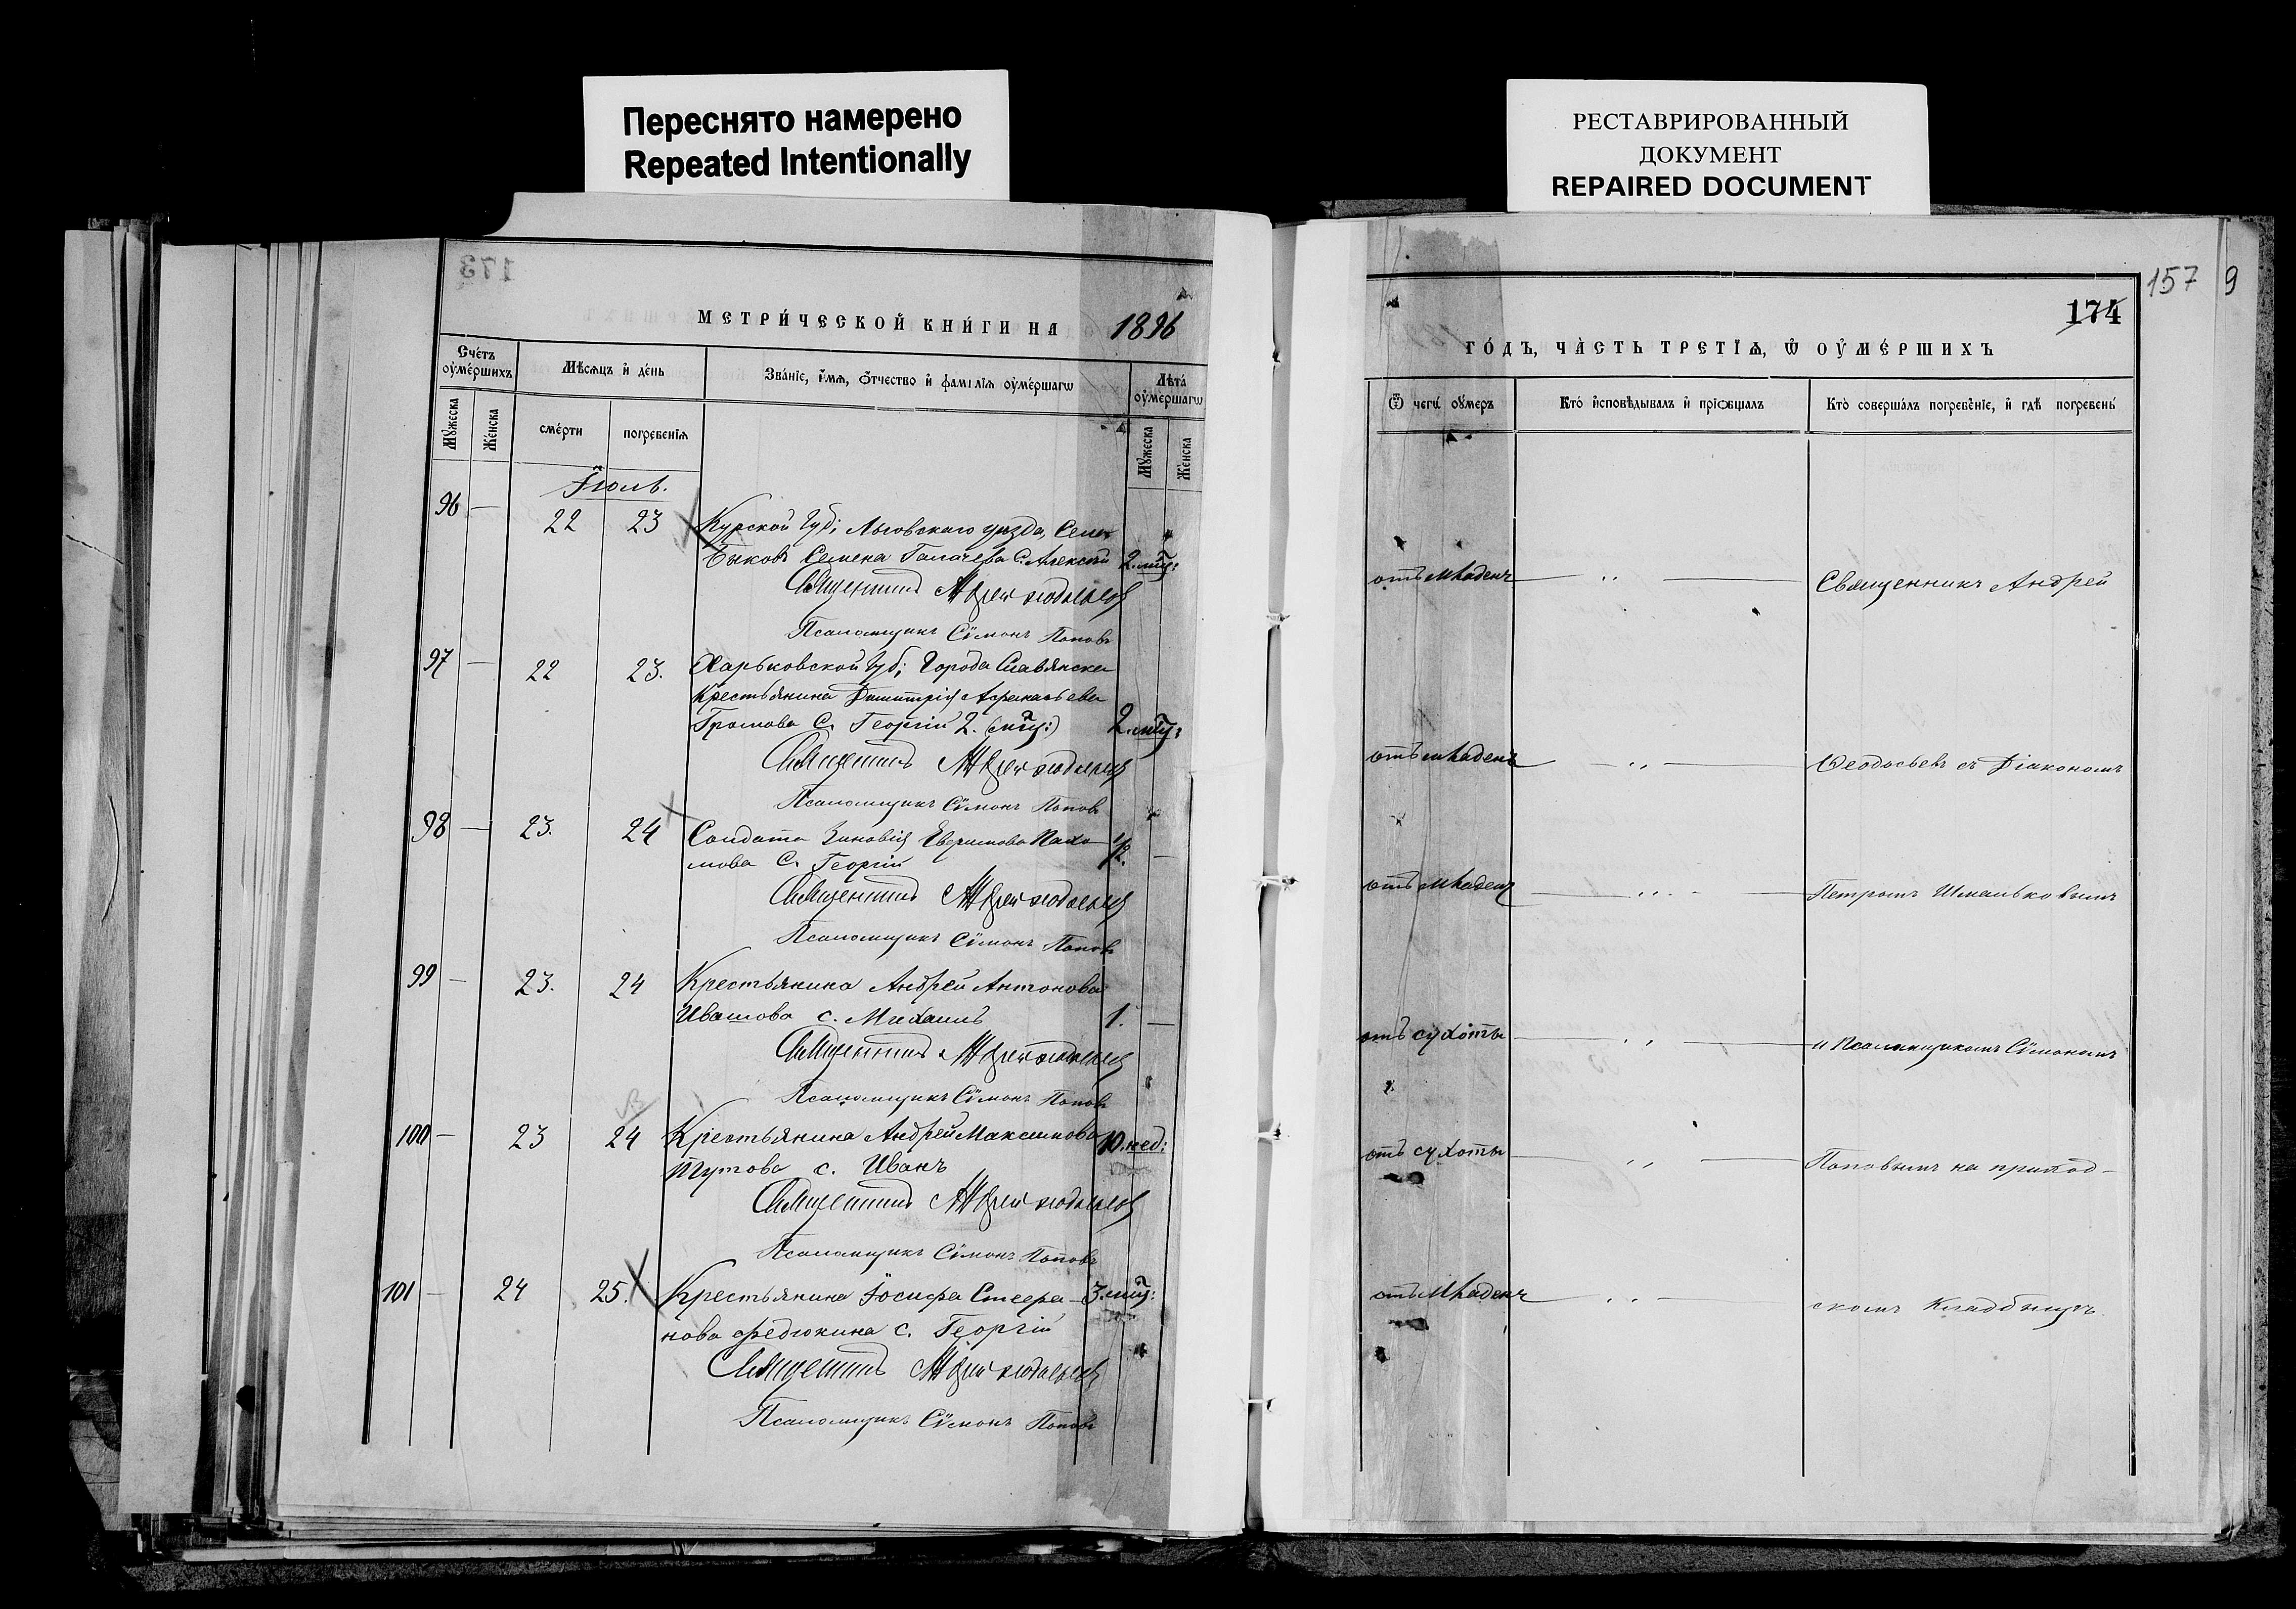 Переснято намерено
Repeated Intentionally
РЕСТАВРИРОВАННЫЙ
ДОКУМЕНТ
REPAIRED DOCUMENT
173
МЕТРИ́ЧЕСКОЙ КНИ́ГИ НА 1896
Сче́тъ ѹме́ршихъ
Мѣсѧцъ и҆ де́нь
Зва́нїе, и҆́мѧ, ѻ҆́тчество и҆ фамі́лїѧ ѹме́ршагѡ
Лѣта̀ ѹме́ршагѡ
Мꙋжеска
Же́нска
сме́рти
погребенїѧ
Мꙋжеска
Же́нска
Іюль.
96 — 22 23 Курской Губ; Льговскаго уѣзда, Села
Быковъ Семена Галачева С. Алексѣй 2. мѣц:
Священникъ Андрей Ѳеодосьевъ
Псаломщикъ Сѵмонъ Поповъ
97 — 22 23. Харьковской Губ; Города Славянска
Крестьянина Димитрія Афанасьева
Громова С. Георгій 2. (мѣц:) 2. мѣц:
Священникъ Андрей Ѳеодосьевъ
Псаломщикъ Сѵмонъ Поповъ
98 — 23. 24 Солдата Зиновія Евфимова Пахо-
мова С. Георгій 1/2. —
Священникъ Андрей Ѳеодосьевъ
Псаломщикъ Сѵмонъ Поповъ
99 — 23. 24 Крестьянина Андрей Антонова
Ивашова с. Михаилъ 1. —
Священникъ Андрей Ѳеодосьевъ
Псаломщикъ Сѵмонъ Поповъ
100 — 23 24 Крестьянина Андрей Максимова 10. нед:
Тутова с. Иванъ
Священникъ Андрей Ѳеодосьевъ
Псаломщикъ Сѵмонъ Поповъ
101 — 24 25. Крестьянина Іосифа Стефа- 3. мѣц:
нова Федюкина с. Георгій
Священникъ Андрей Ѳеодосьевъ
Псаломщикъ Сѵмонъ Поповъ
157 9
174
ГО́ДЪ, ЧА́СТЬ ТРЕТЇѦ, Ѿ ОУ҆МЕ́РШИХЪ
Ѿ чегѡ̀ ѹ҆́меръ
Кто̀ и҆сповѣ́дывалъ и҆ прїѡбща́лъ
Кто̀ соверша́лъ погребе́нїе, и҆ гдѣ̀ погребены̀
отъ младенч — ,, — Священникъ Андрей
отъ младенч — ,, — Ѳеодосьевъ съ Діакономъ
отъ младенч — ,, — Петромъ Шмальковымъ
отъ сухоты — ,, — и Псаломщикомъ Сѵмономъ
отъ сухоты — ,, — Поповымъ на приход-
отъ младенч — ,, — скомъ Кладбищѣ.